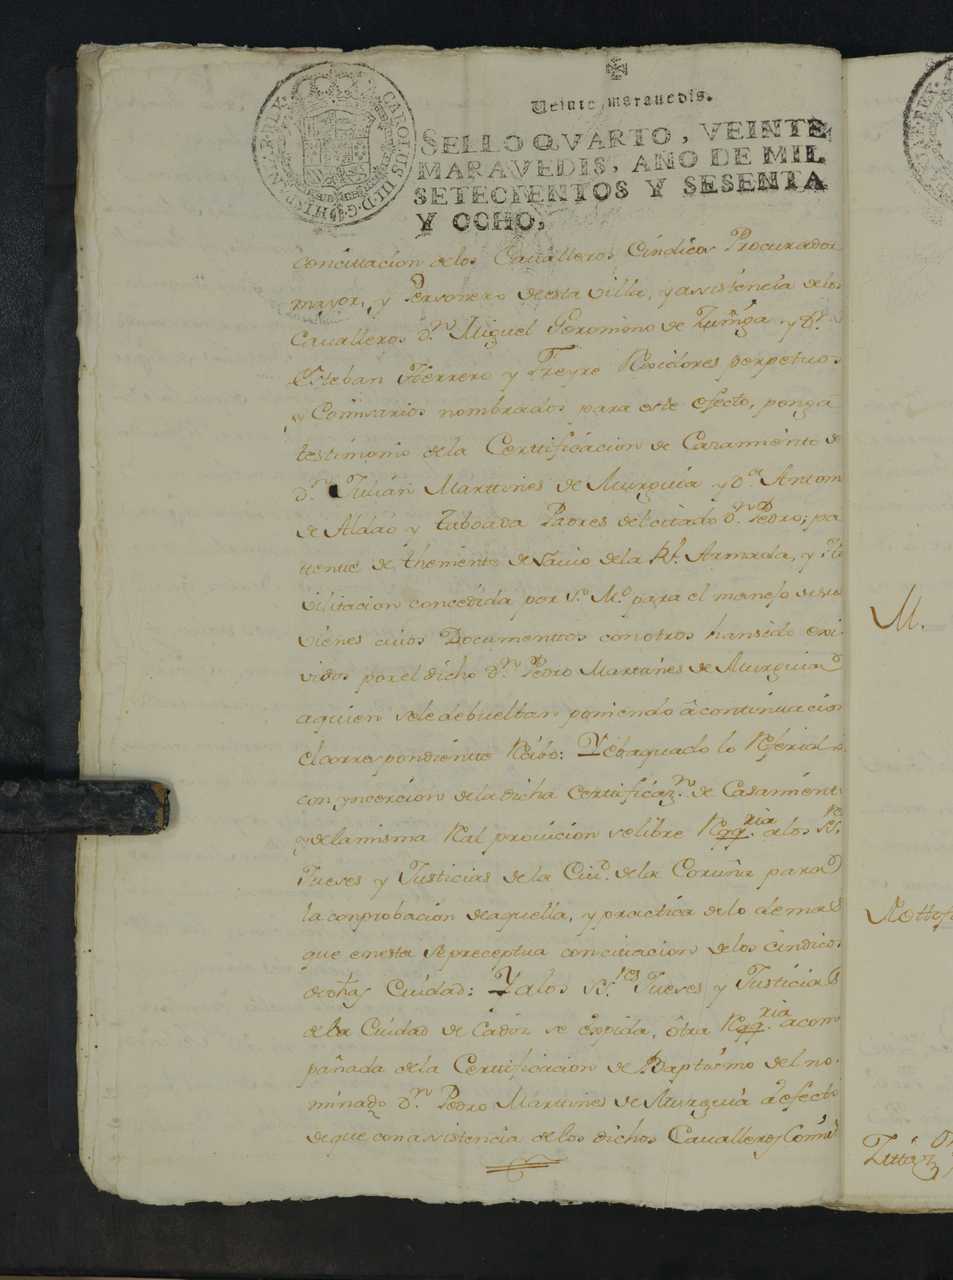 CAROLUS III D G HISPANIAR REX
Veinte maravedis.
SELLO QVARTO, VEINTE
MARAVEDIS, AÑO DE MIL
SETECIENTOS Y SESENTA
Y OCHO,
concittacion delos Cavalleros Cindicos Procurador
mayor, y Personero de esta villa, y assistencia delos
Cavalleros Dn. Miguel Geronimo de Zuñiga y Dn.
Esteban Herrero y Freyre Rexidores perpetuos
y Comisarios nombrados para este efecto, ponga
testimonio de la Certtificacion de Casamiento de
Dn. Julian Marttines de Murguia y Da. Antonia
de Aldao y Taboada Padres del citado Dn. Pedro; pa
tente de thenientte de Navio de la Rl. Armada, y Ha
vilitacion concedida por S.M. para el manejo de sus
vienes cuios Documenttos con otros han sido exi
vidos por el dicho Dn. Pedro Martines de Murguia
a quien sele debuelban poniendo â continuacion
el correspondiente Recibo: Y ebaquado lo Referido
con yncercion dela dicha Certificazn. de Casamiento
y dela misma Real provicion se libre Reqqria. a los SSres.
Jueves y Justicias de la Ciud. de la Coruña para
la conprobacion de aquella, y practica de lo demas
que en esta se preceptua concitacion de los cindicos
de dha Ciudad: Y alos SSres. Jueves y Justicias
de la Ciudad de Cadiz se expida, ôtra Reqqria. acom
pañada de la Certtificacion de Baptismo del no
minado Dn. Pedro Martines de Murguia a efecto
de que con asistencia de los dichos Cavalleros Comis
M.